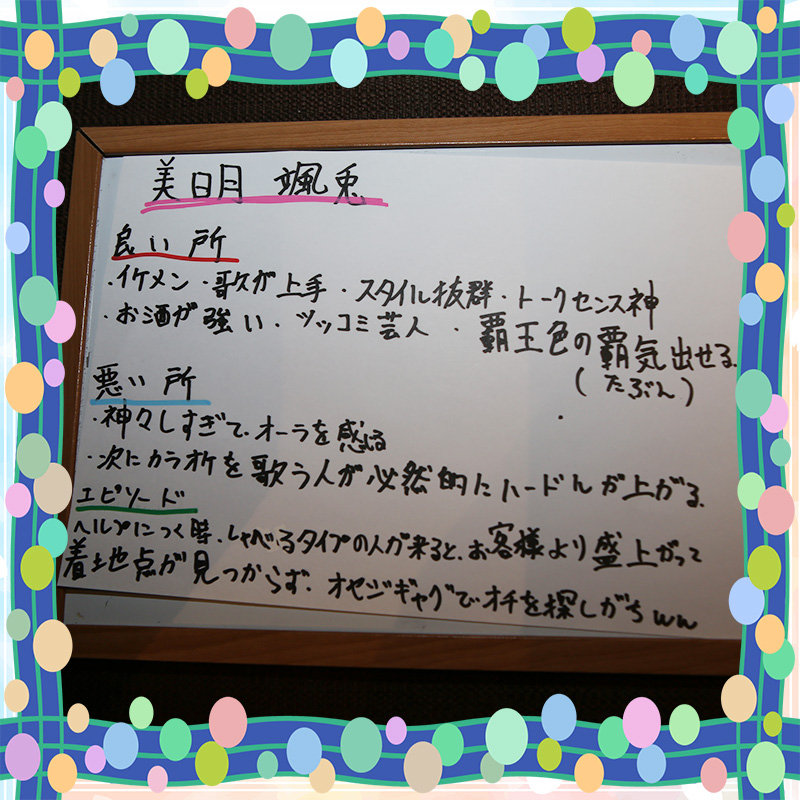 美日月 颯兎
良い所
・イケメン・歌が上手・スタイル抜群・トークセンス神
・お酒が強い・ツッコミ芸人・覇王色の覇気出せる
(たぶん)
悪い所
・神々しすぎて、オーラを感じる
・次にカラオケを歌う人が必然的にハードルが上がる。
エピソード
ヘルプにつく時、しゃべるタイプの人が来ると、お客様より盛上がって
着地点が見つからず、オヤジギャグでオチを探しがちww